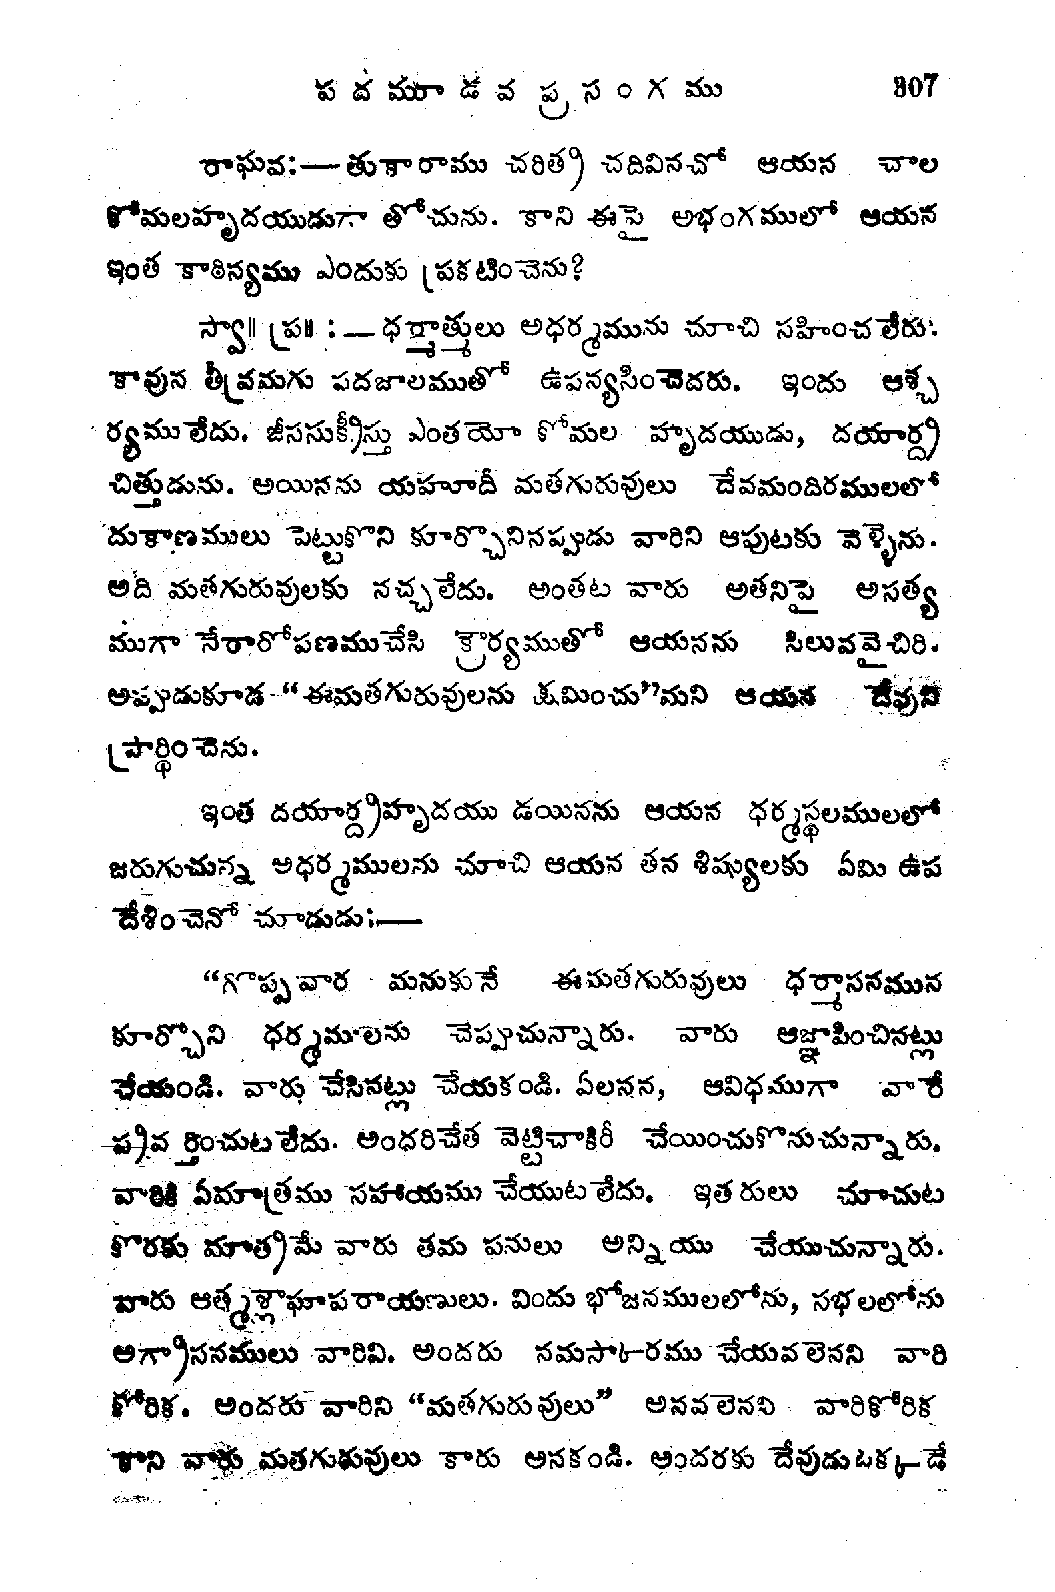 పదమూడవ ప్రసంగము 307
రాఘవ:—తుకారాము చరిత్ర చదివినచో ఆయన చాల
కోమలహృదయుడుగా తోచును. కాని ఈపై అభంగములో ఆయన
ఇంత కాఠిన్యము ఎందుకు ప్రకటించెను?
స్వా॥ ప్ర॥ :—ధర్మాత్ములు అధర్మమును చూచి సహించలేరు.
కావున తీవ్రమగు పదజాలముతో ఉపన్యసించెదరు. ఇందు ఆశ్చ
ర్యములేదు. జీససుక్రీస్తు ఎంతయో కోమల హృదయుడు, దయార్ద్ర
చిత్తుడును. అయినను యహూదీ మతగురువులు దేవమందిరములలో
దుకాణములు పెట్టుకొని కూర్చొనినప్పుడు వారిని ఆపుటకు వెళ్ళెను.
అది మతగురువులకు నచ్చలేదు. అంతట వారు అతనిపై అసత్య
ముగా నేరారోపణముచేసి క్రౌర్యముతో ఆయనను సిలువవైచిరి.
అప్పుడుకూడ “ఈమతగురువులను క్షమించు”మని ఆయన దేవుని
ప్రార్థించెను.
ఇంత దయార్ద్రహృదయు డయినను ఆయన ధర్మస్థలములలో
జరుగుచున్న అధర్మములను చూచి ఆయన తన శిష్యులకు ఏమి ఉప
దేశించెనో చూడుడు:—
“గొప్పవార మనుకునే ఈమతగురువులు ధర్మాసనమున
కూర్చోని ధర్మములను చెప్పుచున్నారు. వారు ఆజ్ఞాపించినట్లు
చేయండి. వారు చేసినట్లు చేయకండి. ఏలనన, ఆవిధముగా వారే
ప్రవర్తించుటలేదు. అంధరిచేత వెట్టిచాకిరీ చేయించుకొనుచున్నారు.
వారికి ఏమాత్రము సహాయము చేయుటలేదు. ఇతరులు చూచుట
కొరకు మాత్రమే వారు తమ పనులు అన్నియు చేయుచున్నారు.
వారు ఆత్మశ్లాఘాపరాయణులు. విందు భోజనములలోను, సభలలోను
అగ్రాసనములు వారివి. అందరు నమస్కారము చేయవలెనని వారి
కోరిక. అందరు వారిని “మతగురువులు” అనవలెనని వారికోరిక
కాని వారు మతగురువులు కారు అనకండి. అందరకు దేవుడుఒక్కడే